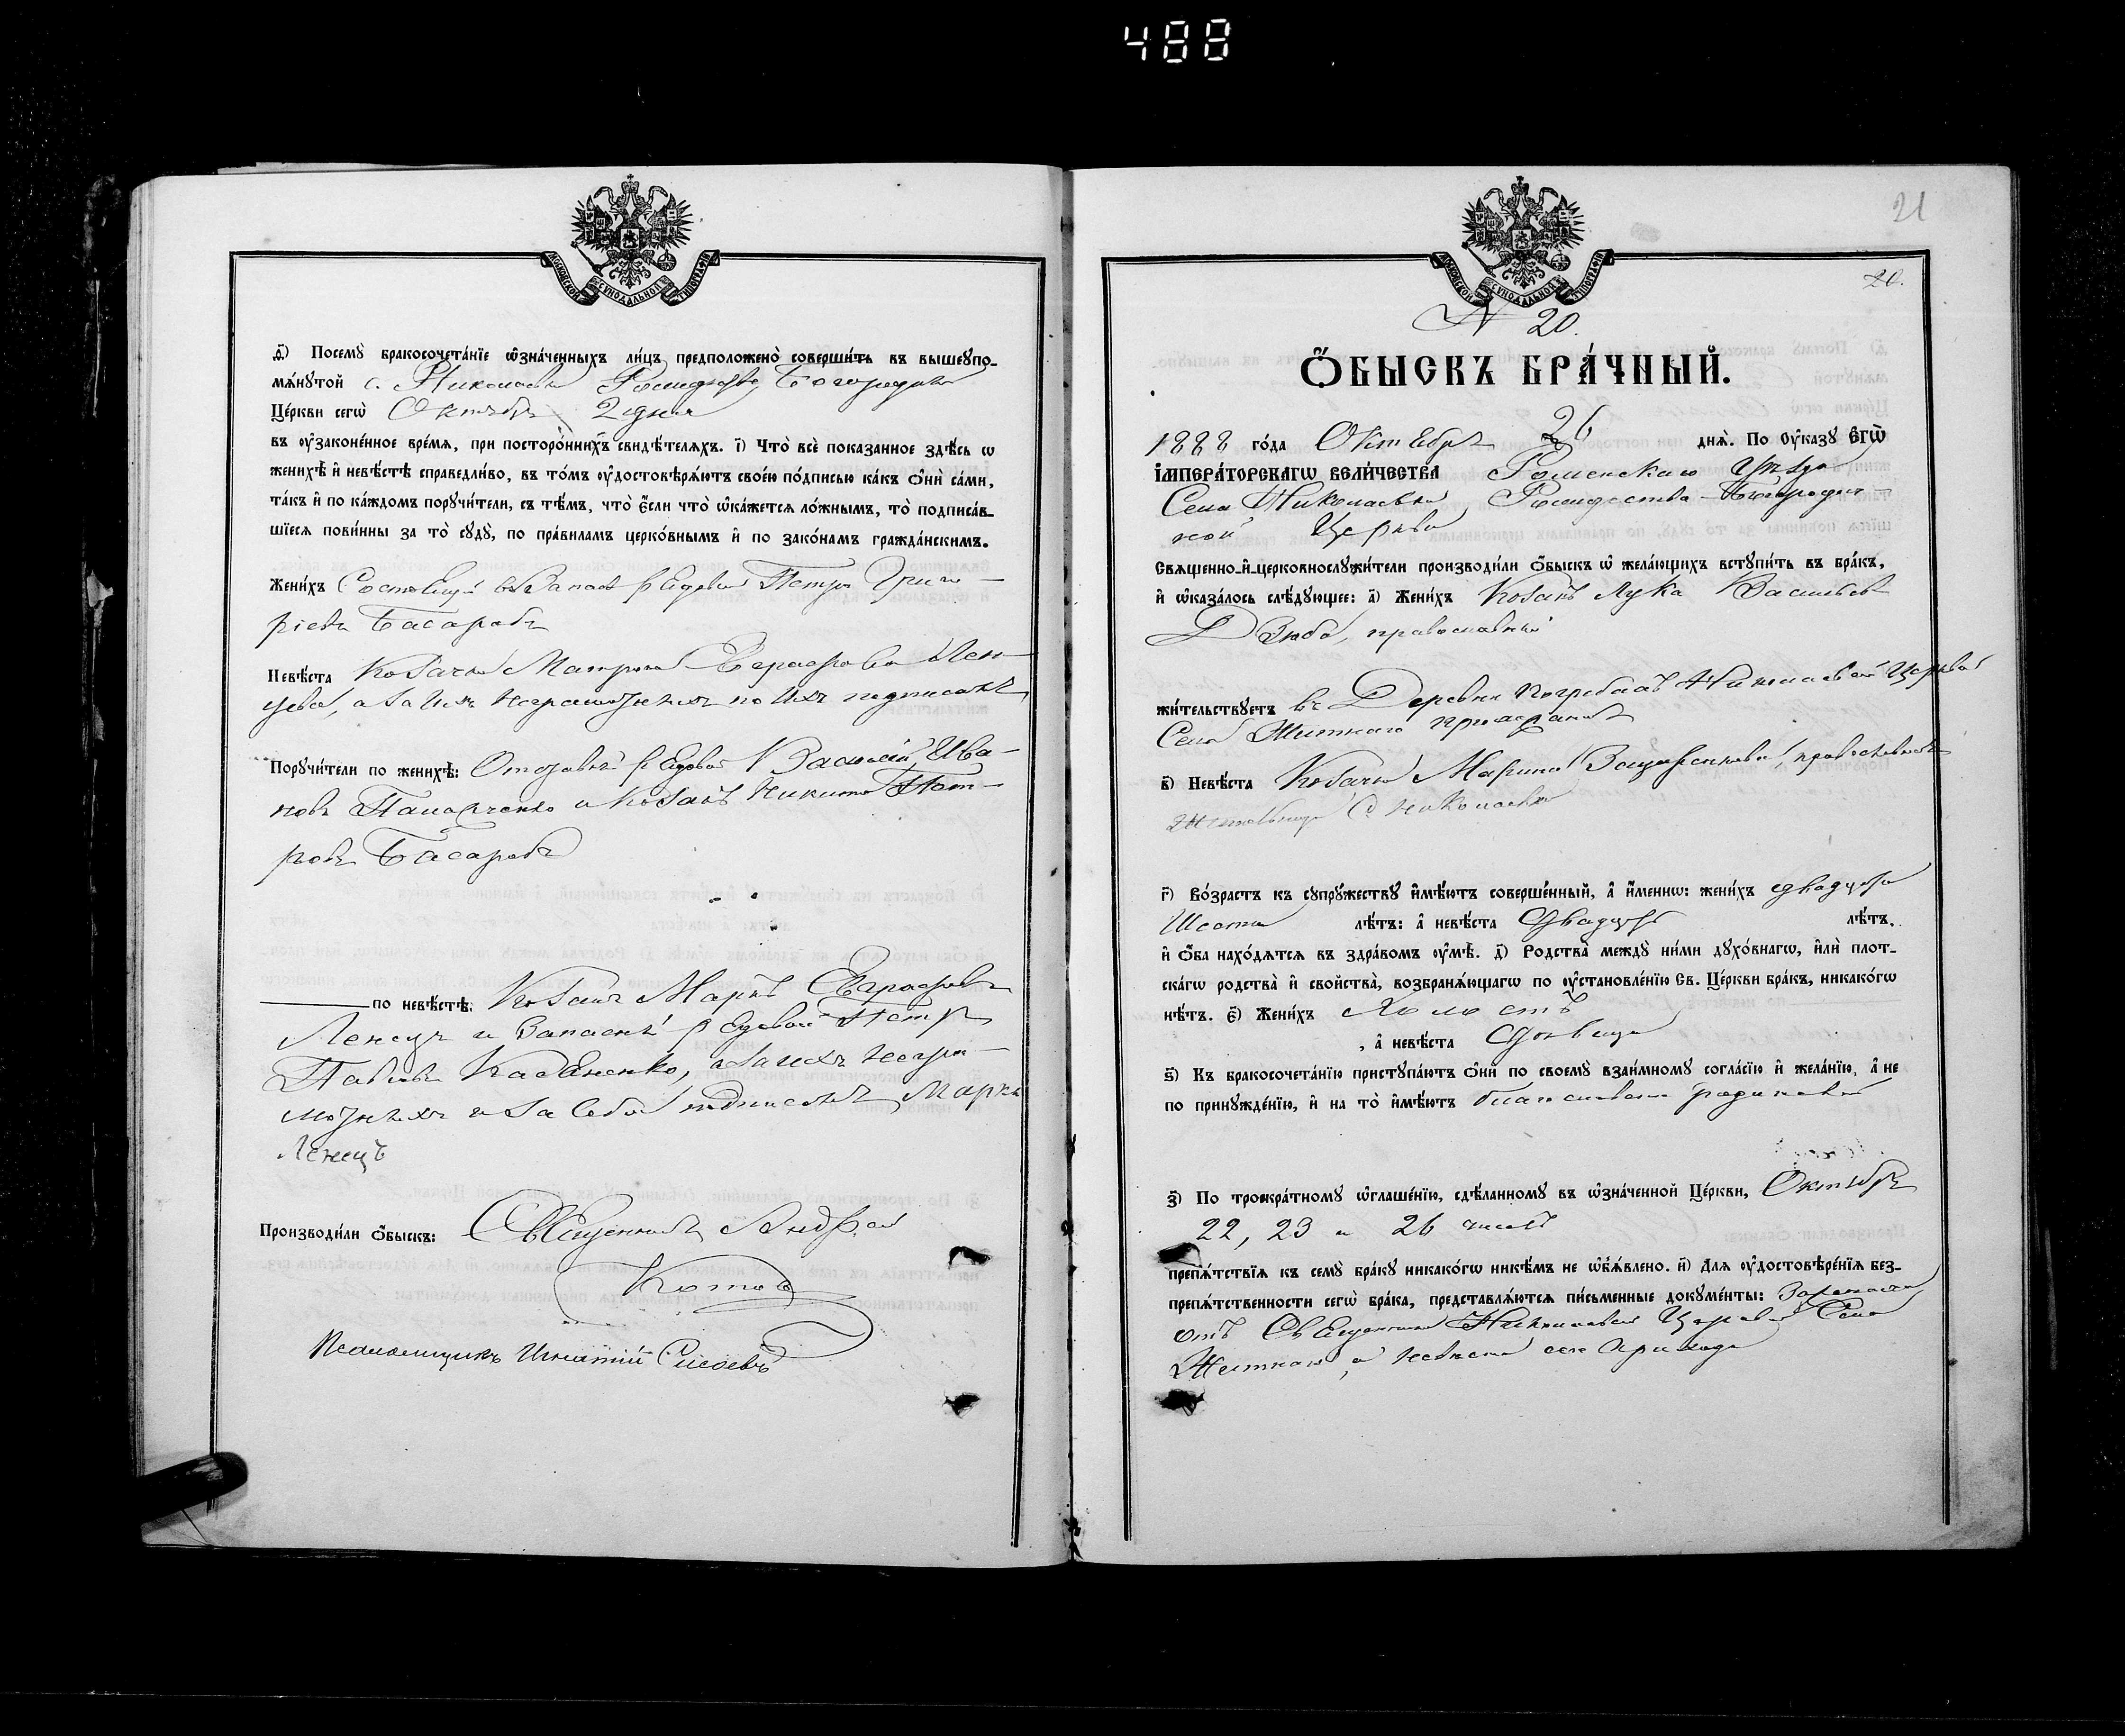 488
МОСКОВСКОЙ СУНОДАЛЬНОЙ ТИПОГРАФІИ
д҃і) Посемꙋ̀ бракосочета́нїе ѡ҆зна́ченныхъ ли́цъ предположено̀ соверши́ть въ вышеꙋпо-
мѧ́нꙋтой с. Николаевки Рождество Богородичной
Це́ркви сегѡ̀ Октября 2 дня
въ ᲂу҆зако́нєнное вре́мѧ, при посторо́ннихъ свидѣ́телѧхъ. і҃) Что̀ всѐ показанное здѣ́сь ѡ
женихѣ̀ и҆ невѣ́стѣ справедли́во, въ то́мъ ᲂу҆достовѣрѧ́ютъ свое́ю по́дписью ка́къ ѻ҆нѝ са́ми,
та́къ и҆ по ка́ждомъ порꙋчи́тели, съ тѣ́мъ, что̀ є҆́сли что̀ ѡ҆ка́жетсѧ ло́жнымъ, то̀ подписа́в-
шїесѧ пови́нны за то̀ сꙋдꙋ̀, по пра́виламъ церко́внымъ и҆ по зако́намъ гражда́нскимъ.
Жени́хъ Состоящій въ Запасѣ рядовой Петръ Григо-
ріевъ Басарабъ
Невѣ́ста Козачка Матрона Евграфова Лен-
цева, а за ихъ неграмотныхъ по ихъ
Порꙋчи́тели по женихѣ̀: Отставной рядовой Василій Ива-
новъ и Козакъ Никита Пет-
ровъ Басарабъ
по невѣ́стѣ: Козакъ Маркъ Евграфовъ
Ленецъ и Запасный рядовой Петръ
Павловъ , а за ихъ негра-
мотныхъ и за себя подписался Маркъ
Ленецъ
Производи́ли ѻ҆́быскъ: Священникъ Андрей
Котовъ
Псаломщикъ Игнатій Сисоевъ
21
МОСКОВСКОЙ СУНОДАЛЬНОЙ ТИПОГРАФІИ
20.
N 20.
Ѻ҆́БЫСКЪ БРА́ЧНЫЙ.
1888 го́да Октября 26 днѧ̀. По ᲂу҆ка́зꙋ Є҆ГѠ̀
І҆МПЕРА́ТОРСКАГѠ ВЕЛИ́ЧЕСТВА Роменскаго Уѣзда
Села Николаевки, Рождества-Богородич-
ной Церкви
Свѧщенно-и҆-церковнослꙋжи́тели производи́ли ѻ҆́быскъ ѡ҆ жела́ющихъ встꙋпи́ть въ бра́къ,
и҆ ѡ҆каза́лось слѣ́дꙋющее: а҃) Жени́хъ Козакъ Лука Васильевъ
Дзюба, православный
жи́тельствꙋетъ въ Деревни Погребахъ Николаевской Церкви
Села Житнаго
в҃) Невѣ́ста Козачка Марина , православная
Жительница С Николаевки
г҃) Во́зрастъ къ сꙋпрꙋ́жествꙋ и҆мѣ́ютъ соверше́нный, а҆ и҆́меннѡ: жени́хъ двадцати
Шести лѣ́тъ: а҆ невѣ́ста Двадцать лѣ́тъ,
и҆ ѻ҆́ба нахо́дѧтсѧ въ здра́вомъ ᲂу҆мѣ̀. д҃) Родства̀ междꙋ̀ ни́ми дꙋхо́внагѡ, и҆лѝ плот-
ска́гѡ родства̀ и҆ свойства̀, возбранѧ́ющагѡ по ᲂу҆становле́нїю Св. Це́ркви бра́къ, никако́гѡ
нѣ́тъ. є҃) Жени́хъ Холостъ
, а҆ невѣ́ста Дѣвица
ѕ҃) Къ бракосочета́нїю пристꙋпа́ютъ ѻ҆нѝ по своемꙋ̀ взаи́мномꙋ согла́сїю и҆ жела́нїю, а҆ не
по принꙋжде́нїю, и҆ на то̀ и҆мѣ́ютъ благословеніе родителей
з҃) По троекра́тномꙋ ѡ҆глаше́нїю, сдѣ́ланномꙋ въ ѡ҆зна́ченной Це́ркви, Октября
22, 23 и 26 чиселъ
препѧ́тствїѧ къ семꙋ̀ бра́кꙋ никако́гѡ никѣ́мъ не ѡ҆б̾ѧ́влено. и҃) Длѧ ᲂу҆достовѣре́нїѧ без-
препѧ́тственности сегѡ̀ бра́ка, представлѧ́ютсѧ пи́сьменные докꙋме́нты:
отъ Священника Николаевской Церкви Села
Житнаго, а невѣста сего прихода